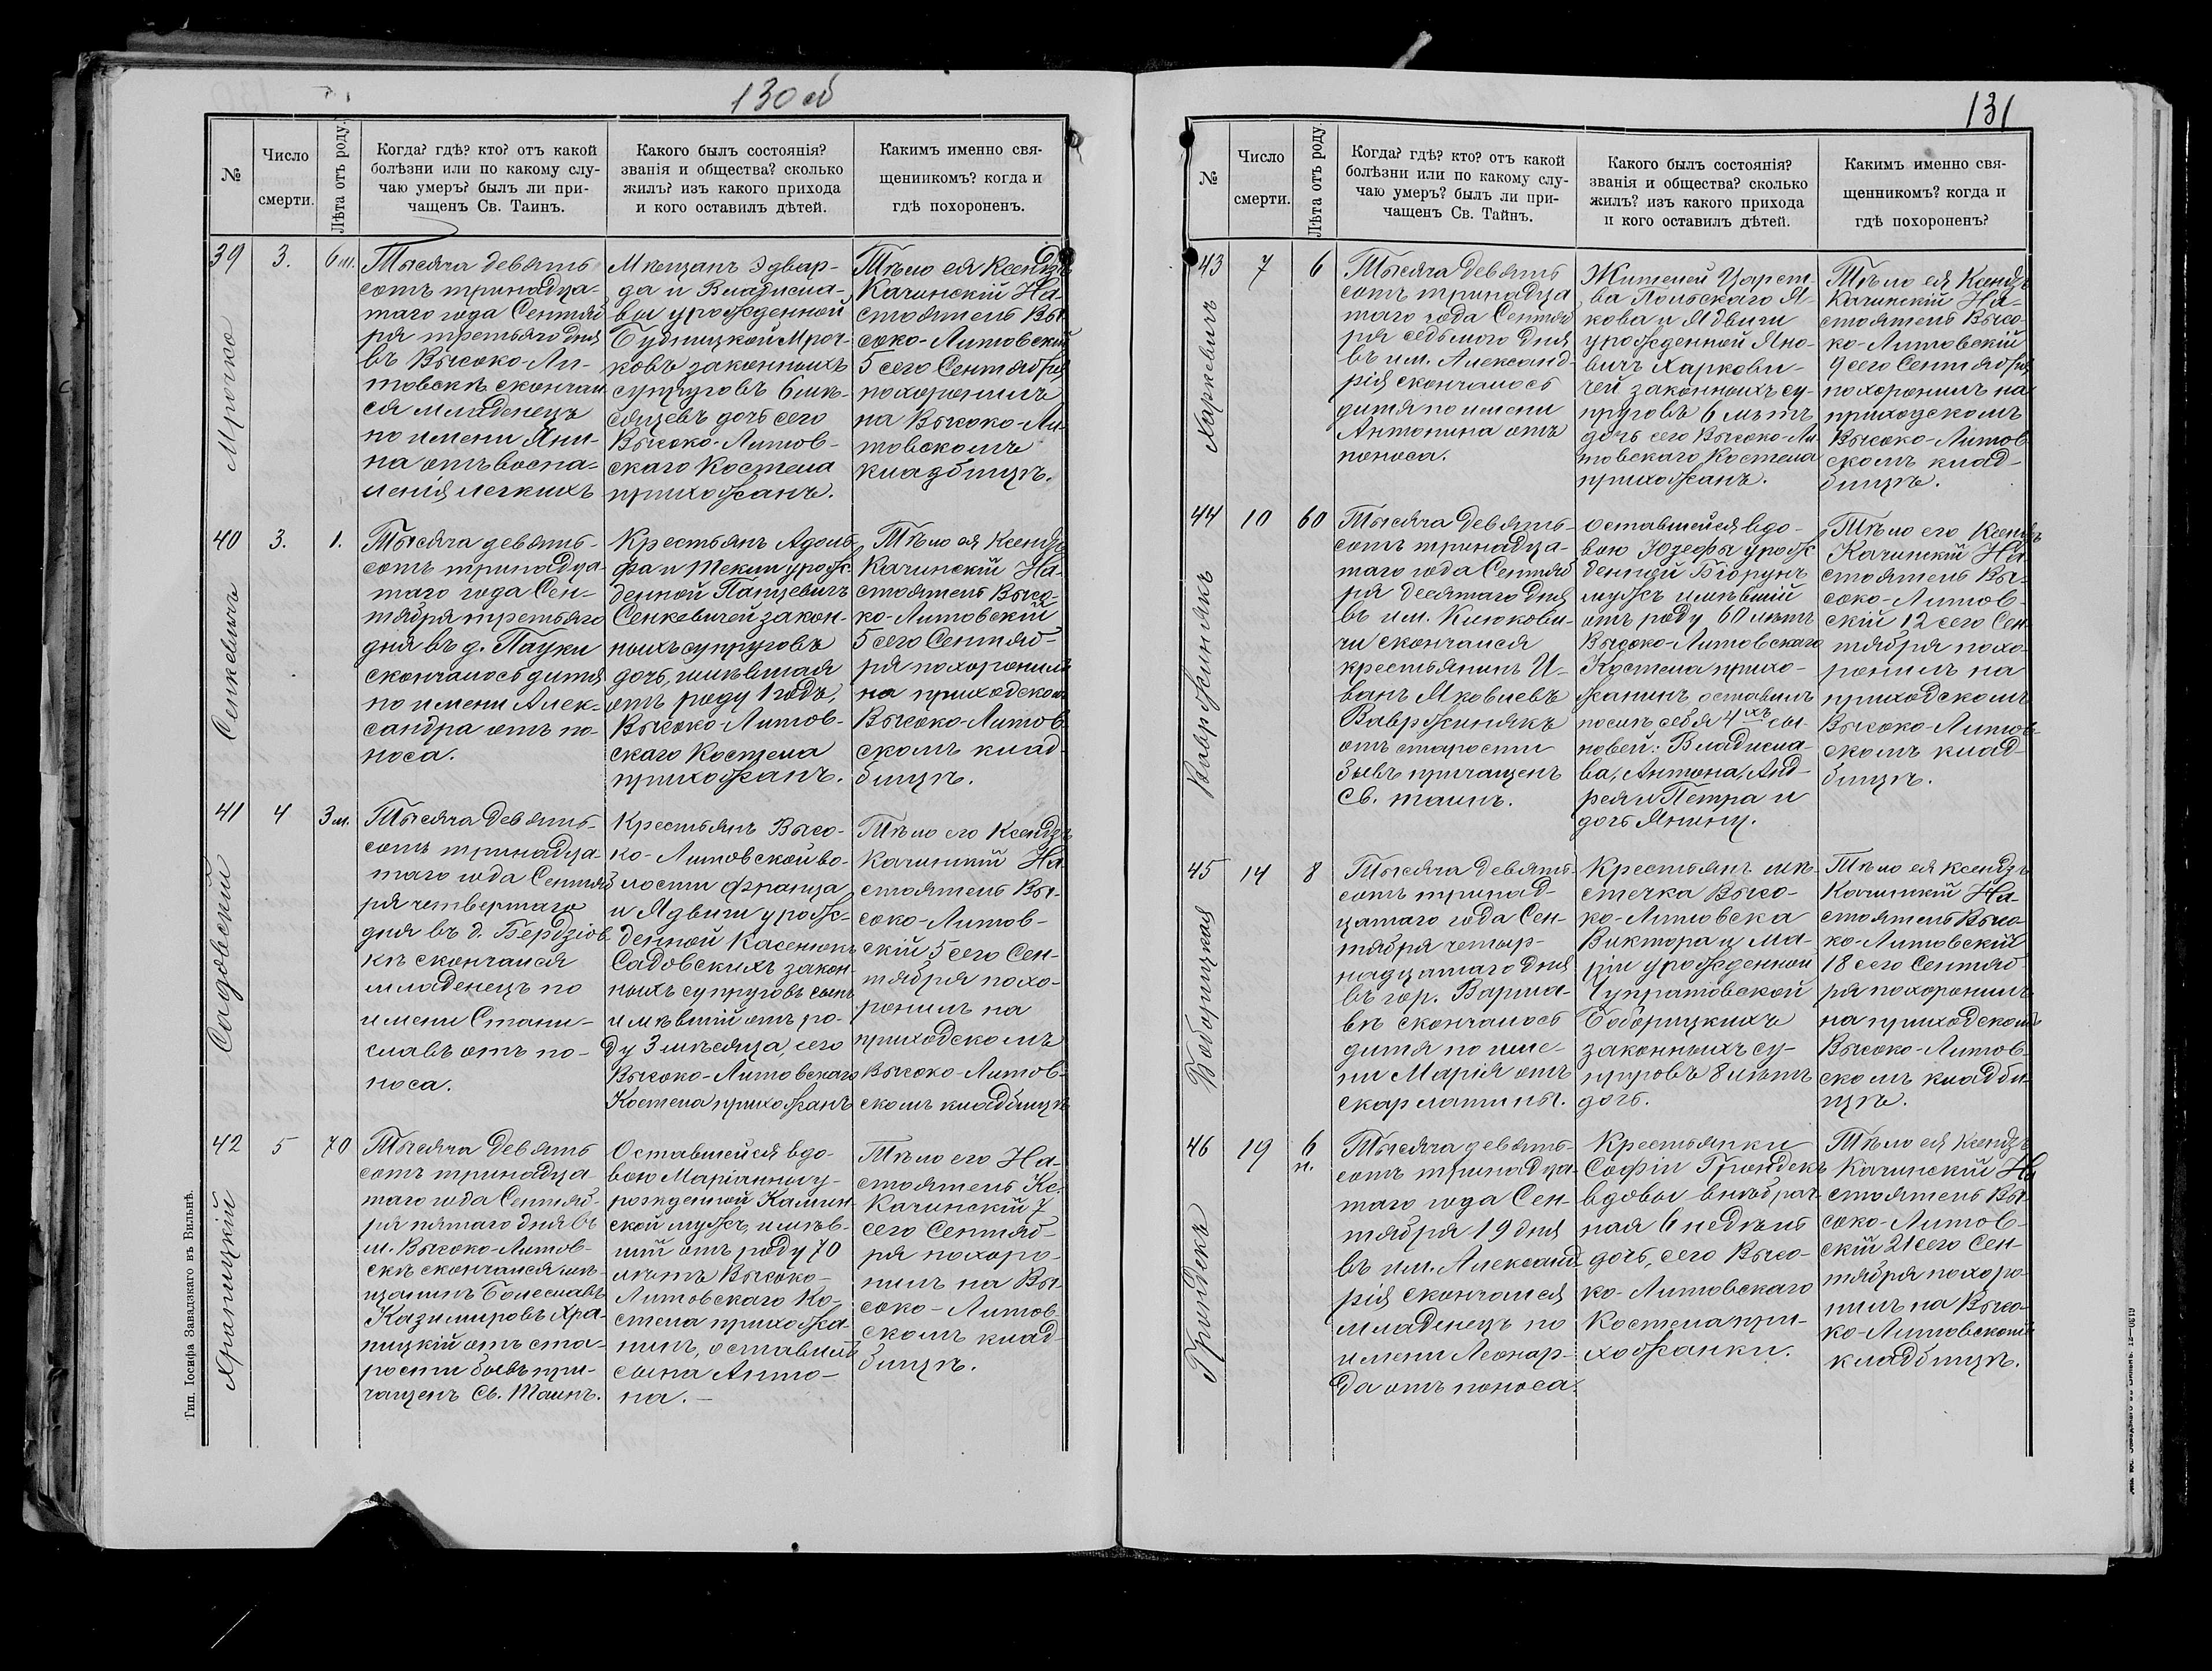 130 об
№
Число
смерти.
Лѣта отъ роду.
Когда? гдѣ? кто? отъ какой
болѣзни или по какому слу-
чаю умеръ? былъ ли при-
чащенъ Св. Таинъ.
Какого былъ состоянія?
званія и общества? сколько
жилъ? изъ какого прихода
и кого оставилъ дѣтей.
Какимъ именно свя-
щенникомъ? когда и
гдѣ похороненъ.
39
Мрочко
3.
6 м.
Тысяча девять
сотъ тринадца-
таго года Сентяб
ря третьяго дня
въ Высоко-Ли-
товскѣ скончал
ся младенецъ
по имени Яни-
на отъ воспа-
ленія легкихъ
Мѣщанъ Эдвар-
да и Владисла-
вы урожденной
Будницкой Мроч-
ковъ законныхъ
супруговъ 6 мѣ-
сяцевъ дочь сего
Высоко-Литов-
скаго Костела
прихожанъ.
Тѣло ея Ксендзъ
Качинскій На-
стоятель Вы-
соко-Литовскій
5 сего Сентября
похоронилъ
на Высоко-Ли-
товскомъ
кладбищѣ.
40
Сенкевичъ
3.
1.
Тысяча девять-
сотъ тринадца-
таго года Сен-
тября третьяго
дня въ д. Пауки
скончалось дитя
по имени Алек-
сандра отъ по-
носа.
Крестьянъ Адоль-
фа и Текли урож-
денной Панцевичъ
Сенкевичей закон-
ныхъ супруговъ
дочь, имѣвшая
отъ роду 1 годъ,
Высоко-Литов-
скаго Костела
прихожанъ.
Тѣло ея Ксендзъ
Качинскій На-
стоятель Высо-
ко-Литовскій
5 сего Сентяб-
ря похоронилъ
на приходском
Высоко-Литов
скомъ клад-
бищѣ.
41
Садовский
4
3 м.
Тысяча девять-
сотъ тринадца-
таго года Сентяб
ря четвертаго
дня въ д. Бердзіов
кѣ скончался
младенецъ по
имени Стани-
славъ отъ по-
носа.
Крестьянъ Высо-
ко-Литовской во-
лости Франца
и Ядвиги урож-
денной Касенюкъ
Садовскихъ закон-
ныхъ супруговъ сынъ
имѣвшій отъ ро-
ду 3 мѣсяца, сего
Высоко-Литовскаго
Костела прихожанъ
Тѣло его Ксендзъ
Качинскій На-
стоятель Вы-
соко-Литов-
скій 5 сего Сен-
тября похо-
ронилъ на
приходскомъ
Высоко-Литов-
скомъ кладбищѣ
42
Храпицкій
5
70
Тысяча девять
сотъ тринадца-
таго года Сентяб-
ря пятаго дня въ
м. Высоко-Литов-
скѣ скончался мѣ-
щанинъ Болеславъ
Казимировъ Хра-
пицкій отъ ста-
рости бывъ при-
чащенъ Св. Таинъ.
Оставшейся вдо-
вою Маріанны у-
рожденной Камин-
ской мужъ, имѣв-
шій отъ роду 70
лѣтъ Высоко-
Литовскаго Ко-
стела прихожа-
нинъ, оставилъ
сына Анто-
на.-
Тѣло его На-
стоятель Кс.
Качинскій 7
сего Сентяб-
ря похоро-
нилъ на Вы-
соко-Литов
скомъ клад-
бищѣ.
Тип. Іосифа Завадзкаго въ Вильнѣ.
131
№
Число
смерти.
Лѣта отъ роду.
Когда? гдѣ? кто? отъ какой
болѣзни или по какому слу-
чаю умеръ? былъ ли при-
чащенъ Св. Тайнъ.
Какого былъ состоянія?
званія и общества? сколько
жилъ? изъ какого прихода
и кого оставилъ дѣтей.
Какимъ именно свя-
щенникомъ? когда и
гдѣ похороненъ?
43
Харкевичъ
7
6
Тысяча девять
сотъ тринадца
таго года Сентяб
ря седьмого дня
въ им. Александ-
рія скончалось
дитя по имени
Антонина отъ
поноса.
Жителей Царст-
ва Польскаго Я-
кова и Ядвиги
урожденной Яно-
вичъ Харкови-
чей законныхъ су-
пруговъ 6 лѣтъ
дочь сего Высоко-Ли
товскаго Костела
прихожанъ.
Тѣло ея Ксендзъ
Качинскій На-
стоятель Высо-
ко-Литовскій
9 сего Сентября
похоронилъ на
приходскомъ
Высоко-Литов
скомъ клад-
бищѣ.
44
Вавржинякъ
10
60
Тысяча девять-
сотъ тринадца-
таго года Сентяб
ря десятаго дня
въ им. Клюкови-
чи скончался
крестьянинъ И-
ванъ Яковлевъ
Вавржинякъ
отъ старости
бывъ причащенъ
Св. таинъ.
Оставшейся вдо-
вою Юзефы урож
денной Біорунъ
мужъ имѣвшій
отъ роду 60 лѣтъ
Высоко-Литовскаго
Костела прихо-
жанинъ оставилъ
послѣ себя 4хъ сы-
новей: Владисла-
ва, Антона, Анд-
рея и Петра и
дочь Янину.
Тѣло его Ксендзъ
Качинскій На-
стоятель Вы-
соко-Литов-
скій 12 сего Сен-
тября похо-
ронилъ на
приходскомъ
Высоко-Литов-
скомъ клад-
бищѣ.
45
Боборицкая
14
8
Тысяча девять-
сотъ тринад-
цатаго года Сен-
тября четыр-
надцатаго дня
въ гор. Варша-
вѣ скончалось
дитя по име-
ни Марія отъ
скарлатины.
Крестьянъ мѣ-
стечка Высо-
ко-Литовска
Виктора и Ма-
ріи урожденной
Чупратовской
Боборицкихъ
законныхъ су-
пруговъ 8 лѣтъ
дочь.
Тѣло ея Ксендзъ
Качинскій На-
стоятель Высо
ко-Литовскій
18 сего Сентяб-
ря похоронилъ
на приходскомъ
Высоко-Литов-
скомъ кладби-
щѣ.
46
Грондекъ
19
6
н.
Тысяча девять-
сотъ тринадца-
таго года Сен-
тября 19 дня
въ им. Александ
рія скончался
младенецъ по
имени Леонар-
да отъ поноса.
Крестьянки
Софіи Грондекъ
вдовы внѣбрач
ная 6 недѣль
дочь, сего Высо-
ко-Литовскаго
Костела при-
хожанки.
Тѣло ея Ксендзъ
Качинскій На
стоятель Вы
соко-Литов-
скій 21 сего Сен-
тября похоро-
нилъ на Высо-
ко-Литовскомъ
кладбищѣ.